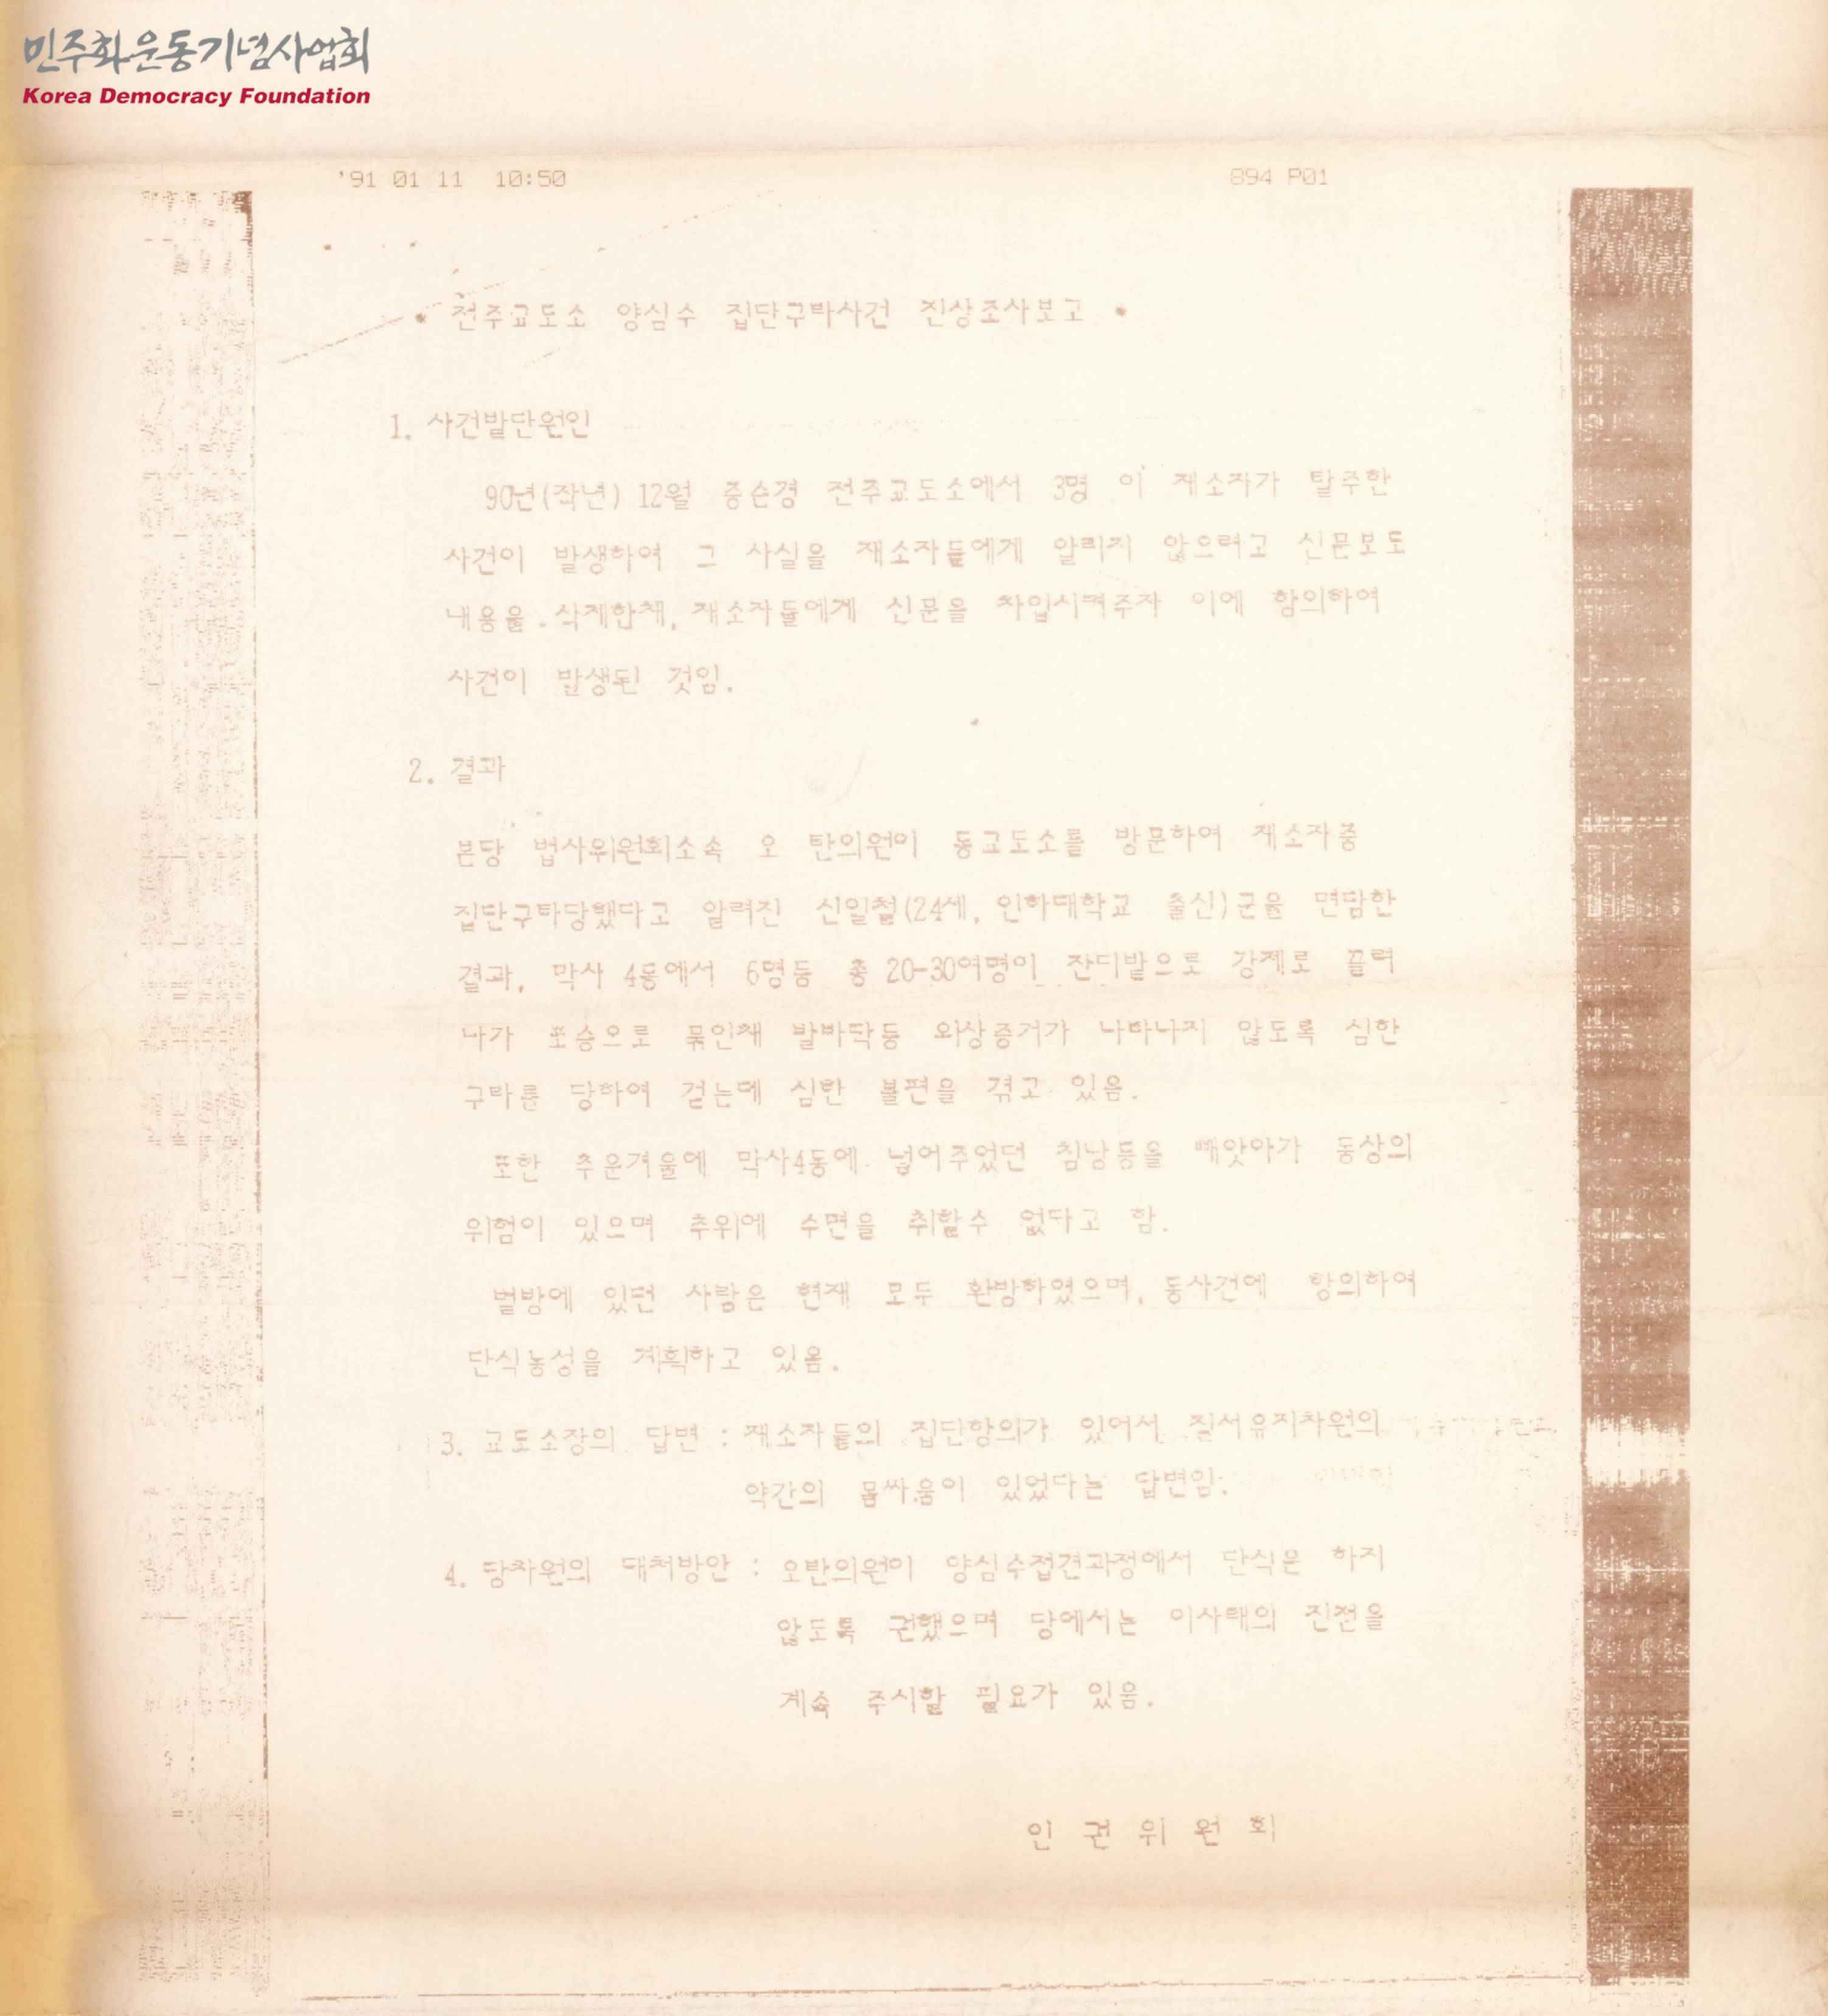 민주화운동기념사업회
Korea Democracy Foundation
'91 01 11 10:50 894 P01
전주교도소 양심수 집단구타사건 진상조사보고
1. 사건발단원인
90년(작년) 12월 중순경 전주교도소에서 3명 이 재소자가 탈주한
사건이 발생하여 그 사실을 재소자들에게 알리지 않으려고 신문보도
내용을 삭제한채, 재소자들에게 신문을 차입시켜주자 이에 항의하여
사건이 발생된 것임.
2. 결과
본당 법사위원회소속 오 탄의원이 동교도소를 방문하여 재소자중
집단구타당했다고 알려진 신일철(24세, 인하대학교 출신)군을 면담한
결과, 막사 4동에서 6명등 총 20-30여명이 잔디밭으로 강제로 끌려
나가 포승으로 묶인채 발바닥등 외상증거가 나타나지 않도록 심한
구타를 당하여 걷는데 심한 불편을 겪고 있음.
또한 추운겨울에 막사4동에 넣어주었던 침낭등을 빼앗아가 동상의
위험이 있으며 추위에 수면을 취할수 없다고 함.
벌방에 있던 사람은 현재 모두 환방하였으며, 동사건에 항의하여
단식농성을 계획하고 있음.
3. 교도소장의 답변 : 재소자들의 집단항의가 있어서 질서유지차원의
약간의 몸싸움이 있었다는 답변임.
4. 당차원의 대처방안 : 오탄의원이 양심수접견과정에서 단식은 하지
않도록 권했으며 당에서는 이사태의 진전을
계속 주시할 필요가 있음.
인 권 위 원 회